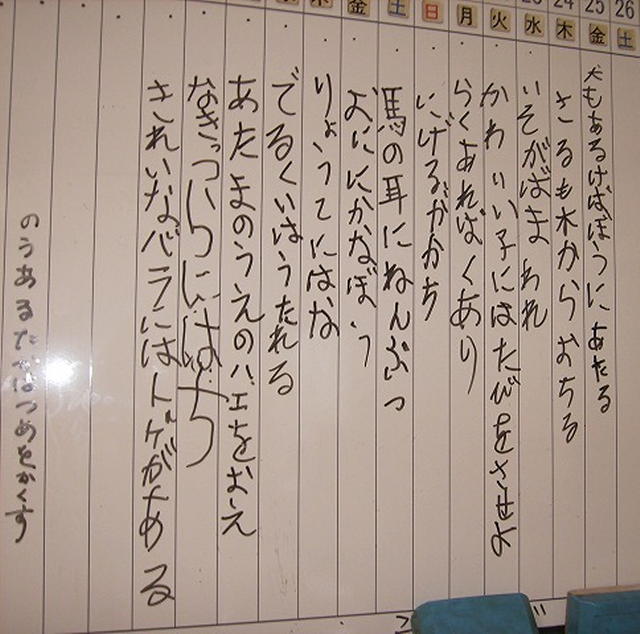 24 25 26
金 土 日 月 火 水 木 金 土
犬もあるけばぼうにあたる
さるも木からおちる
いそがばまわれ
かわいい子にはたびをさせよ
らくあればくあり
にげるがかち
馬の耳にねんぶつ
おににかなぼう
りょうてにはな
でるくいはうたれる
あたまのうえのハエをおえ
なきっつらにはち
きれいなバラにはトゲがある
のうあるたかはつめをかくす